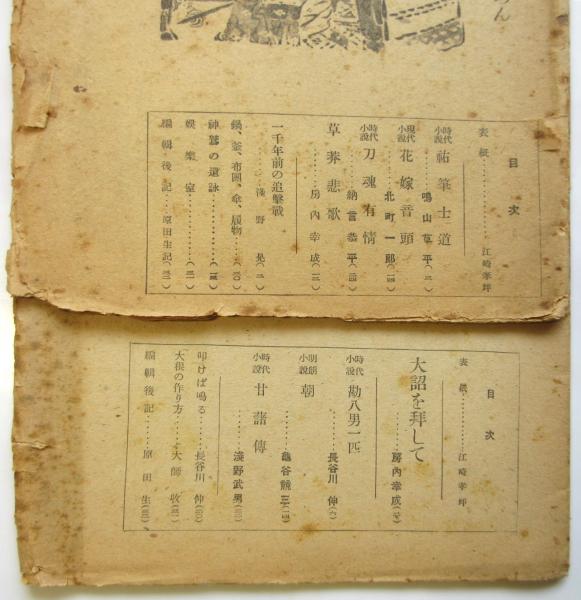 目次
表紙………江崎孝坪
時代小説 祐筆士道………鳴山草平(二)
現代小説 花嫁音頭………北町一郎(一四)
時代小説 刀魂有情………納言恭平(二四)
草莽悲歌………房內幸成(一二)
一千年前の追擊戰………淺野晃(二)
鍋、釜、布團、傘、履物…(一〇)
神鷲の遺詠………
娛樂室………(三一)
編輯後記…原田生記(三二)
目次
表紙………江崎孝坪
大詔を拜して………房內幸成
時代小説 勘八男一匹………長谷川伸(六)
明朗小説 朝………龜谷競三(一四)
時代小説 甘藷傳………淺野武男
叩けば鳴る………長谷川伸(三〇)
大根の作り方………大師收(三一)
編輯後記………原田生(三二)